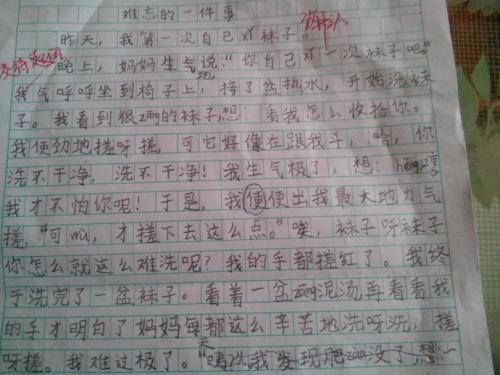 难忘的一件事
昨天，我第一次自己xǐ袜子。
晚上，妈妈生气说：“你自己xǐ一次袜子吧。”
地
我气呼呼坐到椅子上，接了盆热水，开始洗袜
子。我看到很zāng的袜子，想：看我怎么收拾你。
我使劲地搓呀搓，可它好像在跟我斗，哈，你
洗不干净，洗不干净！我生气极了，想：hēng哼
我才不怕你呢！于是，我便使出我最大地力气
搓，“可wù，才搓下去这么点。”唉，袜子呀袜子
你怎么就这么难洗呢？我的手都搓红了。我终
于洗完了一盆袜子。看着一盆zāng泥汤，再看看我
的手才明白了妈妈每都这么辛苦地洗呀洗，搓
天
呀搓。我难过极了。“咦？！我发现肥zào没了，想：一